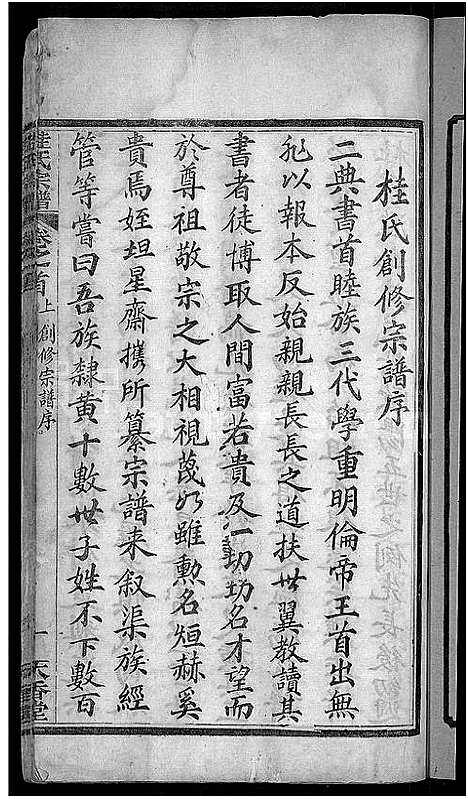 桂氏創修宗譜序
二典書首睦族三代學重明倫帝王首出無
非以報本反始親親長長之道扶世翼教讀其
書者徒博取人間富若貴及一切功名才望而
於尊祖敬宗之大相視蔑如雖勲名烜赫奚
貴焉姪坦星齋攜所纂宗譜来叙渠族經
管等嘗曰吾族隸黄十數世子姓不下數百
桂氏宗譜 卷之首上 創修宗譜序 一 天香堂